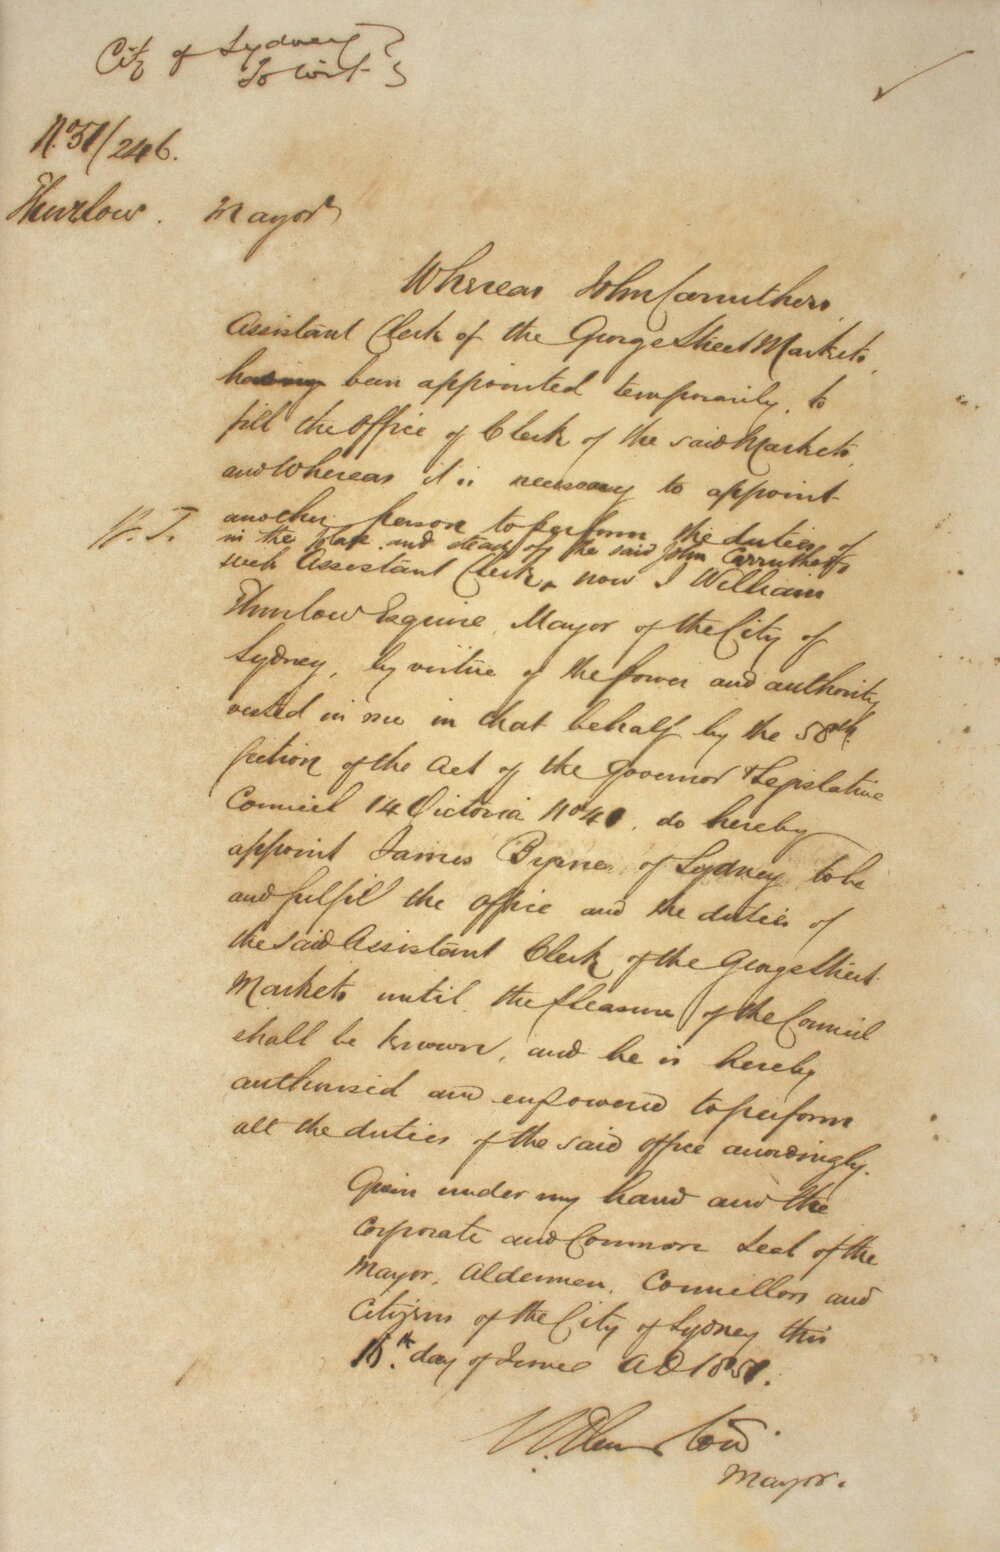 City of Sydney }
To Wit }
No. 51/246.
Thurlow. Mayor
Whereas John Carruthers
Assistant Clerk of the George Street Markets,
been appointed temporarily, to
fill the Office of Clerk of the said Markets,
and Whereas it is necessary to appoint
another person to perform the duties of
W. T.
in the place and stead of the said John Carruthers
such Assistant Clerk, now I William
Thurlow Esquire, Mayor of the City of
Sydney, by virtue of the power and authority
vested in me in that behalf by the 58th
Section of the Act of the Governor & Legislative
Council 14 Victoria No 41, do hereby
appoint James Byrne of Sydney to be
and fulfil the office and the duties of
the said Assistant Clerk of the George Street
Markets until the pleasure of the Council
shall be known, and he is hereby
authorised and empowered to perform
all the duties of the said office accordingly.
Given under my hand and the
corporate and Common Seal of the
Mayor, Aldermen, Councillors and
Citizens of the City of Sydney this
day of June AD 1851.
W Thurlow
Mayor.